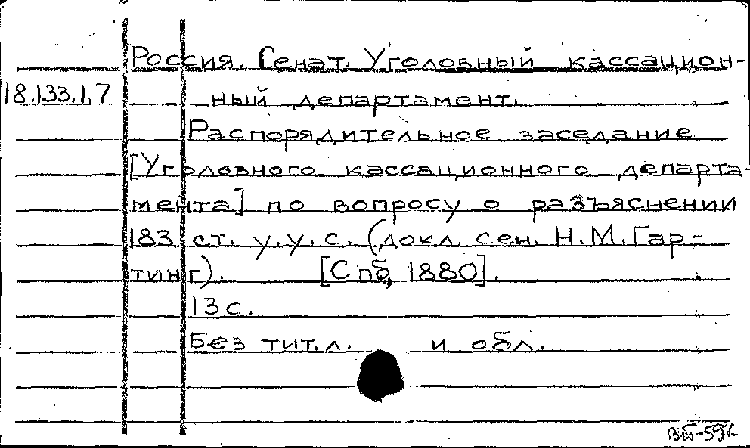 Россия. Сенат. Уголовный кассацион-
18.133.1.7 ный департамент.
Распорядительное заседание
[Уголовного кассационного департа-
мента] по вопросу о разъяснении
183 ст. у.у.с. (докл. сен. Н.М.Гар-
тинг). [Спб, 1880].
13 с.
Без тит.л. и обл.